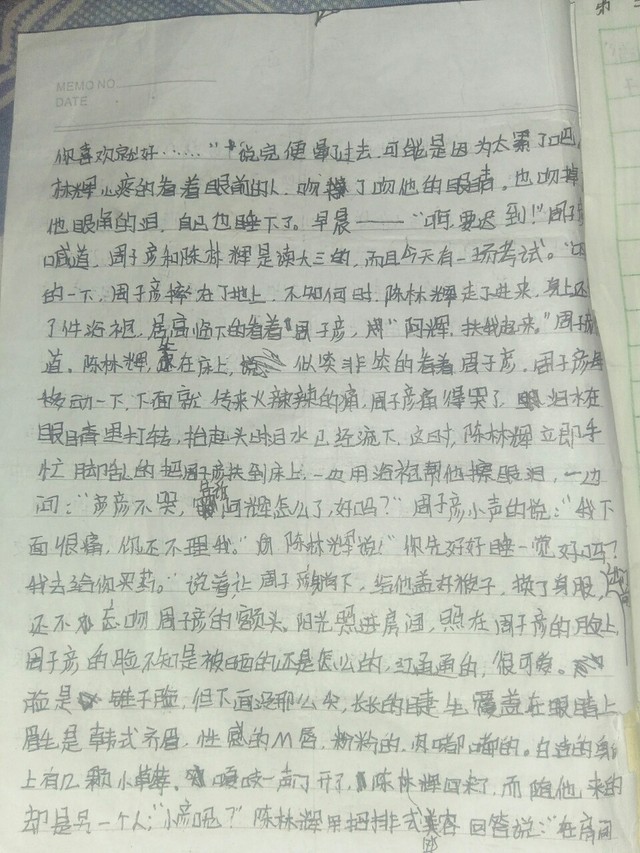 MEMO NO.
DATE
第
你喜欢就好……" 说完便晕了过去,可能是因为太累了吧,
林辉心疼的看着眼前的人,吻了吻他的眼睛,也吻掉
他眼角的泪,自己也睡下了。早晨——"啊,要迟到!"周子
喊道,周子彦和陈林辉是读大三的,而且今天有一场考试。"
的一下,周子彦摔在了地上,不知何时,陈林辉走了进来,身上还
了件浴袍,居高临下的看着周子彦,"阿辉,扶我起来。"周子
道。陈林辉,坐在床上,似笑非笑的看着周子彦,周子彦
移动一下,下面就传来火辣辣的痛,周子彦痛得哭了,泪水在
眼睛里打转,抬起头时泪水已经流下,这时,陈林辉立即手
忙脚乱的把周子彦扶到床上,一边用浴袍帮他擦眼泪,一边
问:"彦彦不哭,告诉阿辉怎么了,好吗?"周子彦小声的说:"我下
面很痛,你还不理我。"陈林辉说:"你先好好睡一觉好吗?
我去给你买药。"说着让周子彦躺下,给他盖好被子,换了身服,
还不忘吻周子彦的额头。阳光照进房间,照在周子彦的脸上,
周子彦的脸不知是被晒的还是怎么的,红通通的,很可爱。
脸是锥子脸,但下面没那么尖,长长的睫毛覆盖在眼睛上,
眉毛是韩式齐眉,性感的M唇,粉粉的,肉嘟嘟的。白皙的身
上有几颗小草莓。嘎吱一声门开了,陈林辉回来了,而随他来的
却是另一个人,"小彦呢?"陈林辉用招牌式笑容回答说:"在房间